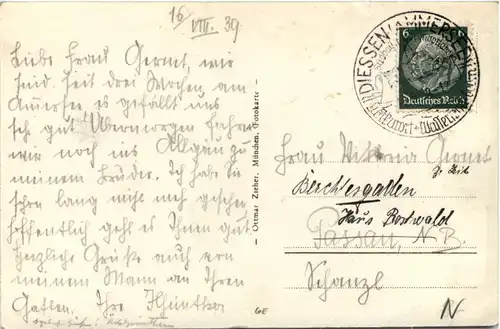 16/VIII. 39
Liebe Frau Gernet, wir
sind seit drei Wochen am
Ammersee es gefällt uns
sehr gut Übermorgen fahren
wir noch ins Allgäu zu
meinem Bruder. Ich habe Sie
schon lang nicht mehr gesehen
hoffentlich geht es Ihnen gut.
Herzliche Grüße auch von
meinem Mann an Ihren
Gatten. Ihre
– Ottmar Zieher, München. Fotokarte –
6E
DIESSEN AMMERSEE
6
Deutsches Reich
Frau Viktoria Gernet
z. Zeit
Berchtesgaden
Haus Bortwald
Passau, N.B.
Schanzl
N